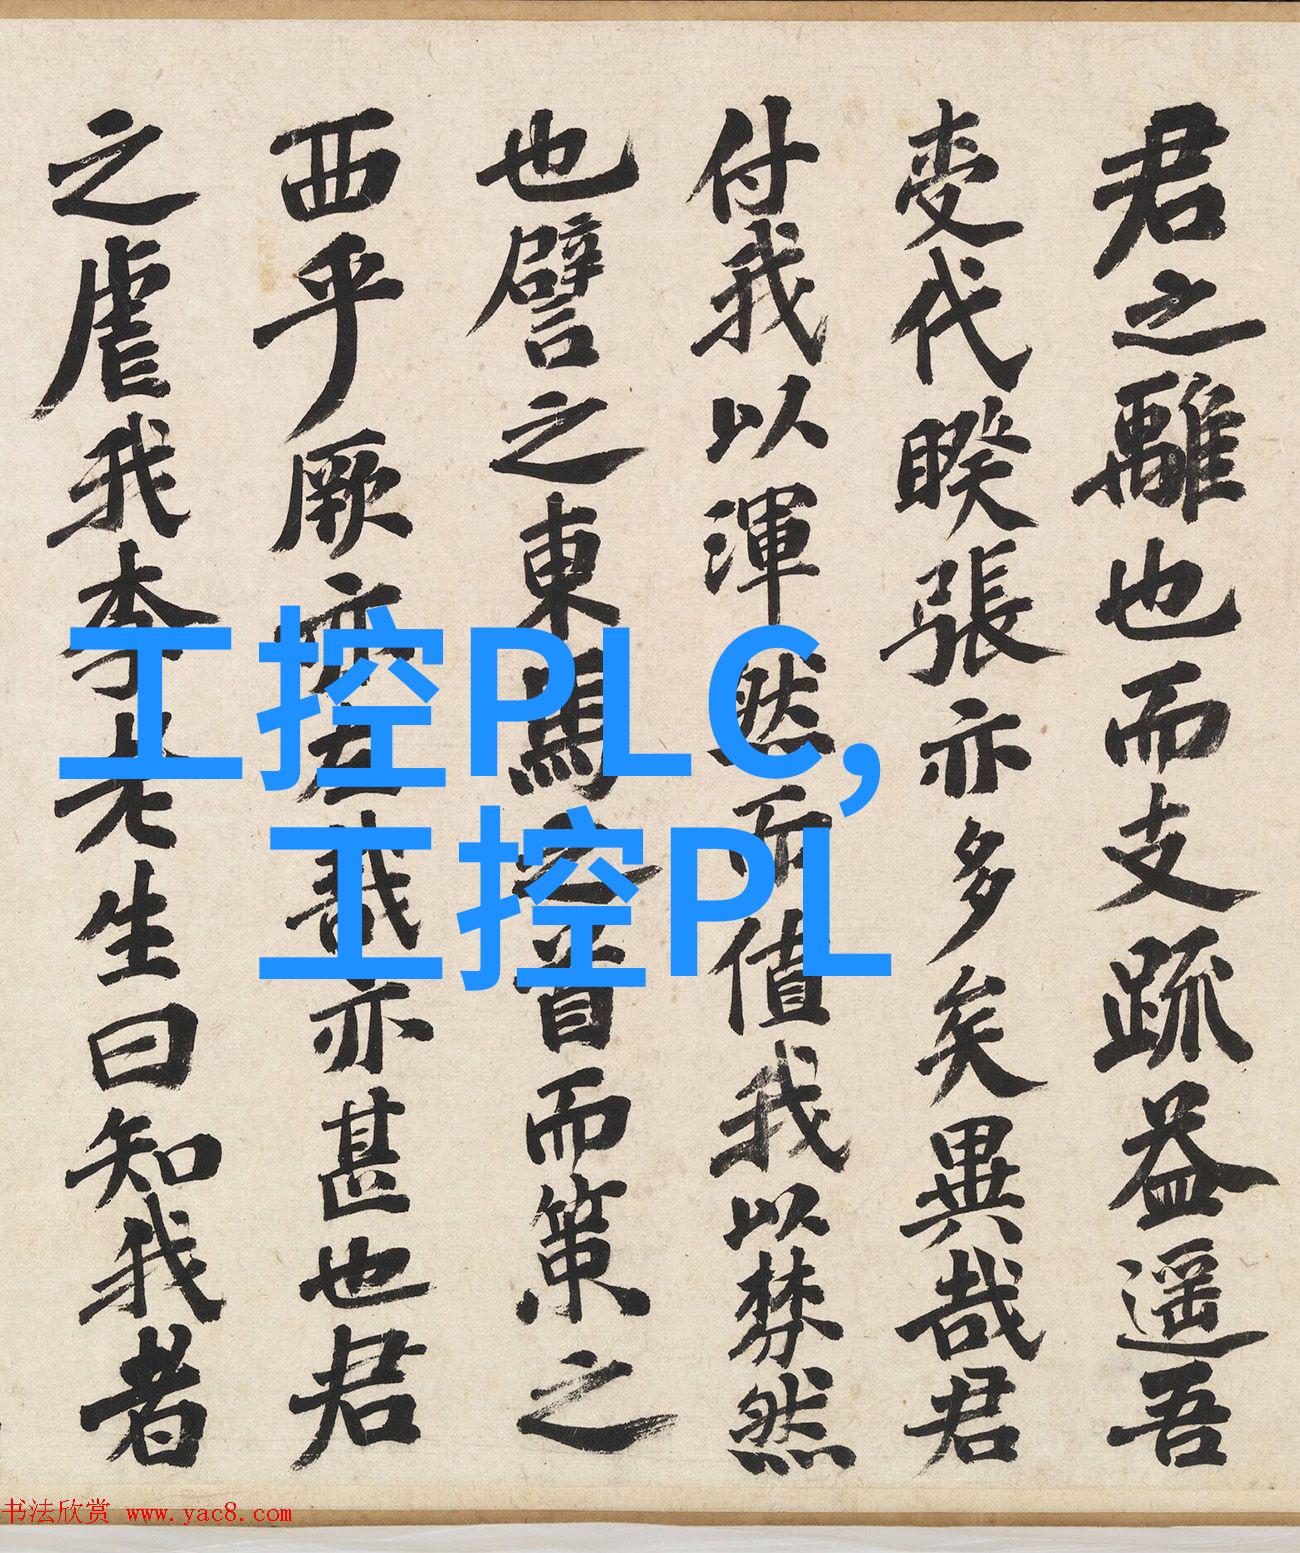 君之離也而支疏益遥吾
变代睽張亦多矣異哉君
付我以渾然而值我以棼然
也譬之東馬之首而策之
西乎厥亦左哉亦甚也君
之虐我李先生曰知我者
工控PLC,
工控PL
书法欣赏 www.yac8.com